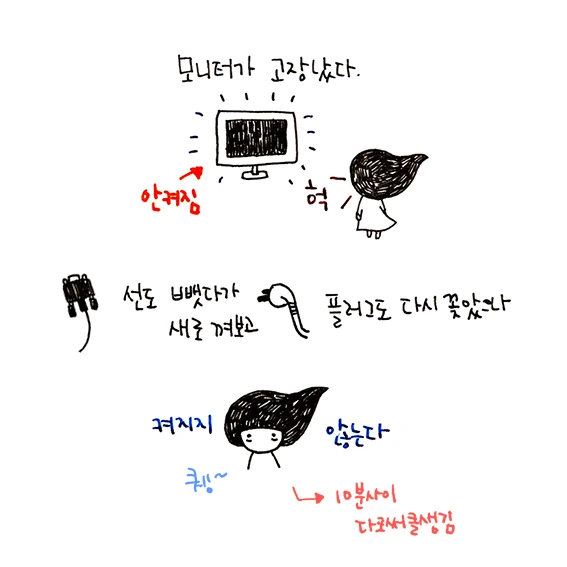 모니터가 고장났다.
안켜짐
헉
선도 뺏다가
새로 껴보고
플러그도 다시 꽂았으나
켜지지 않는다
퀭~
10분사이
다크써클생김